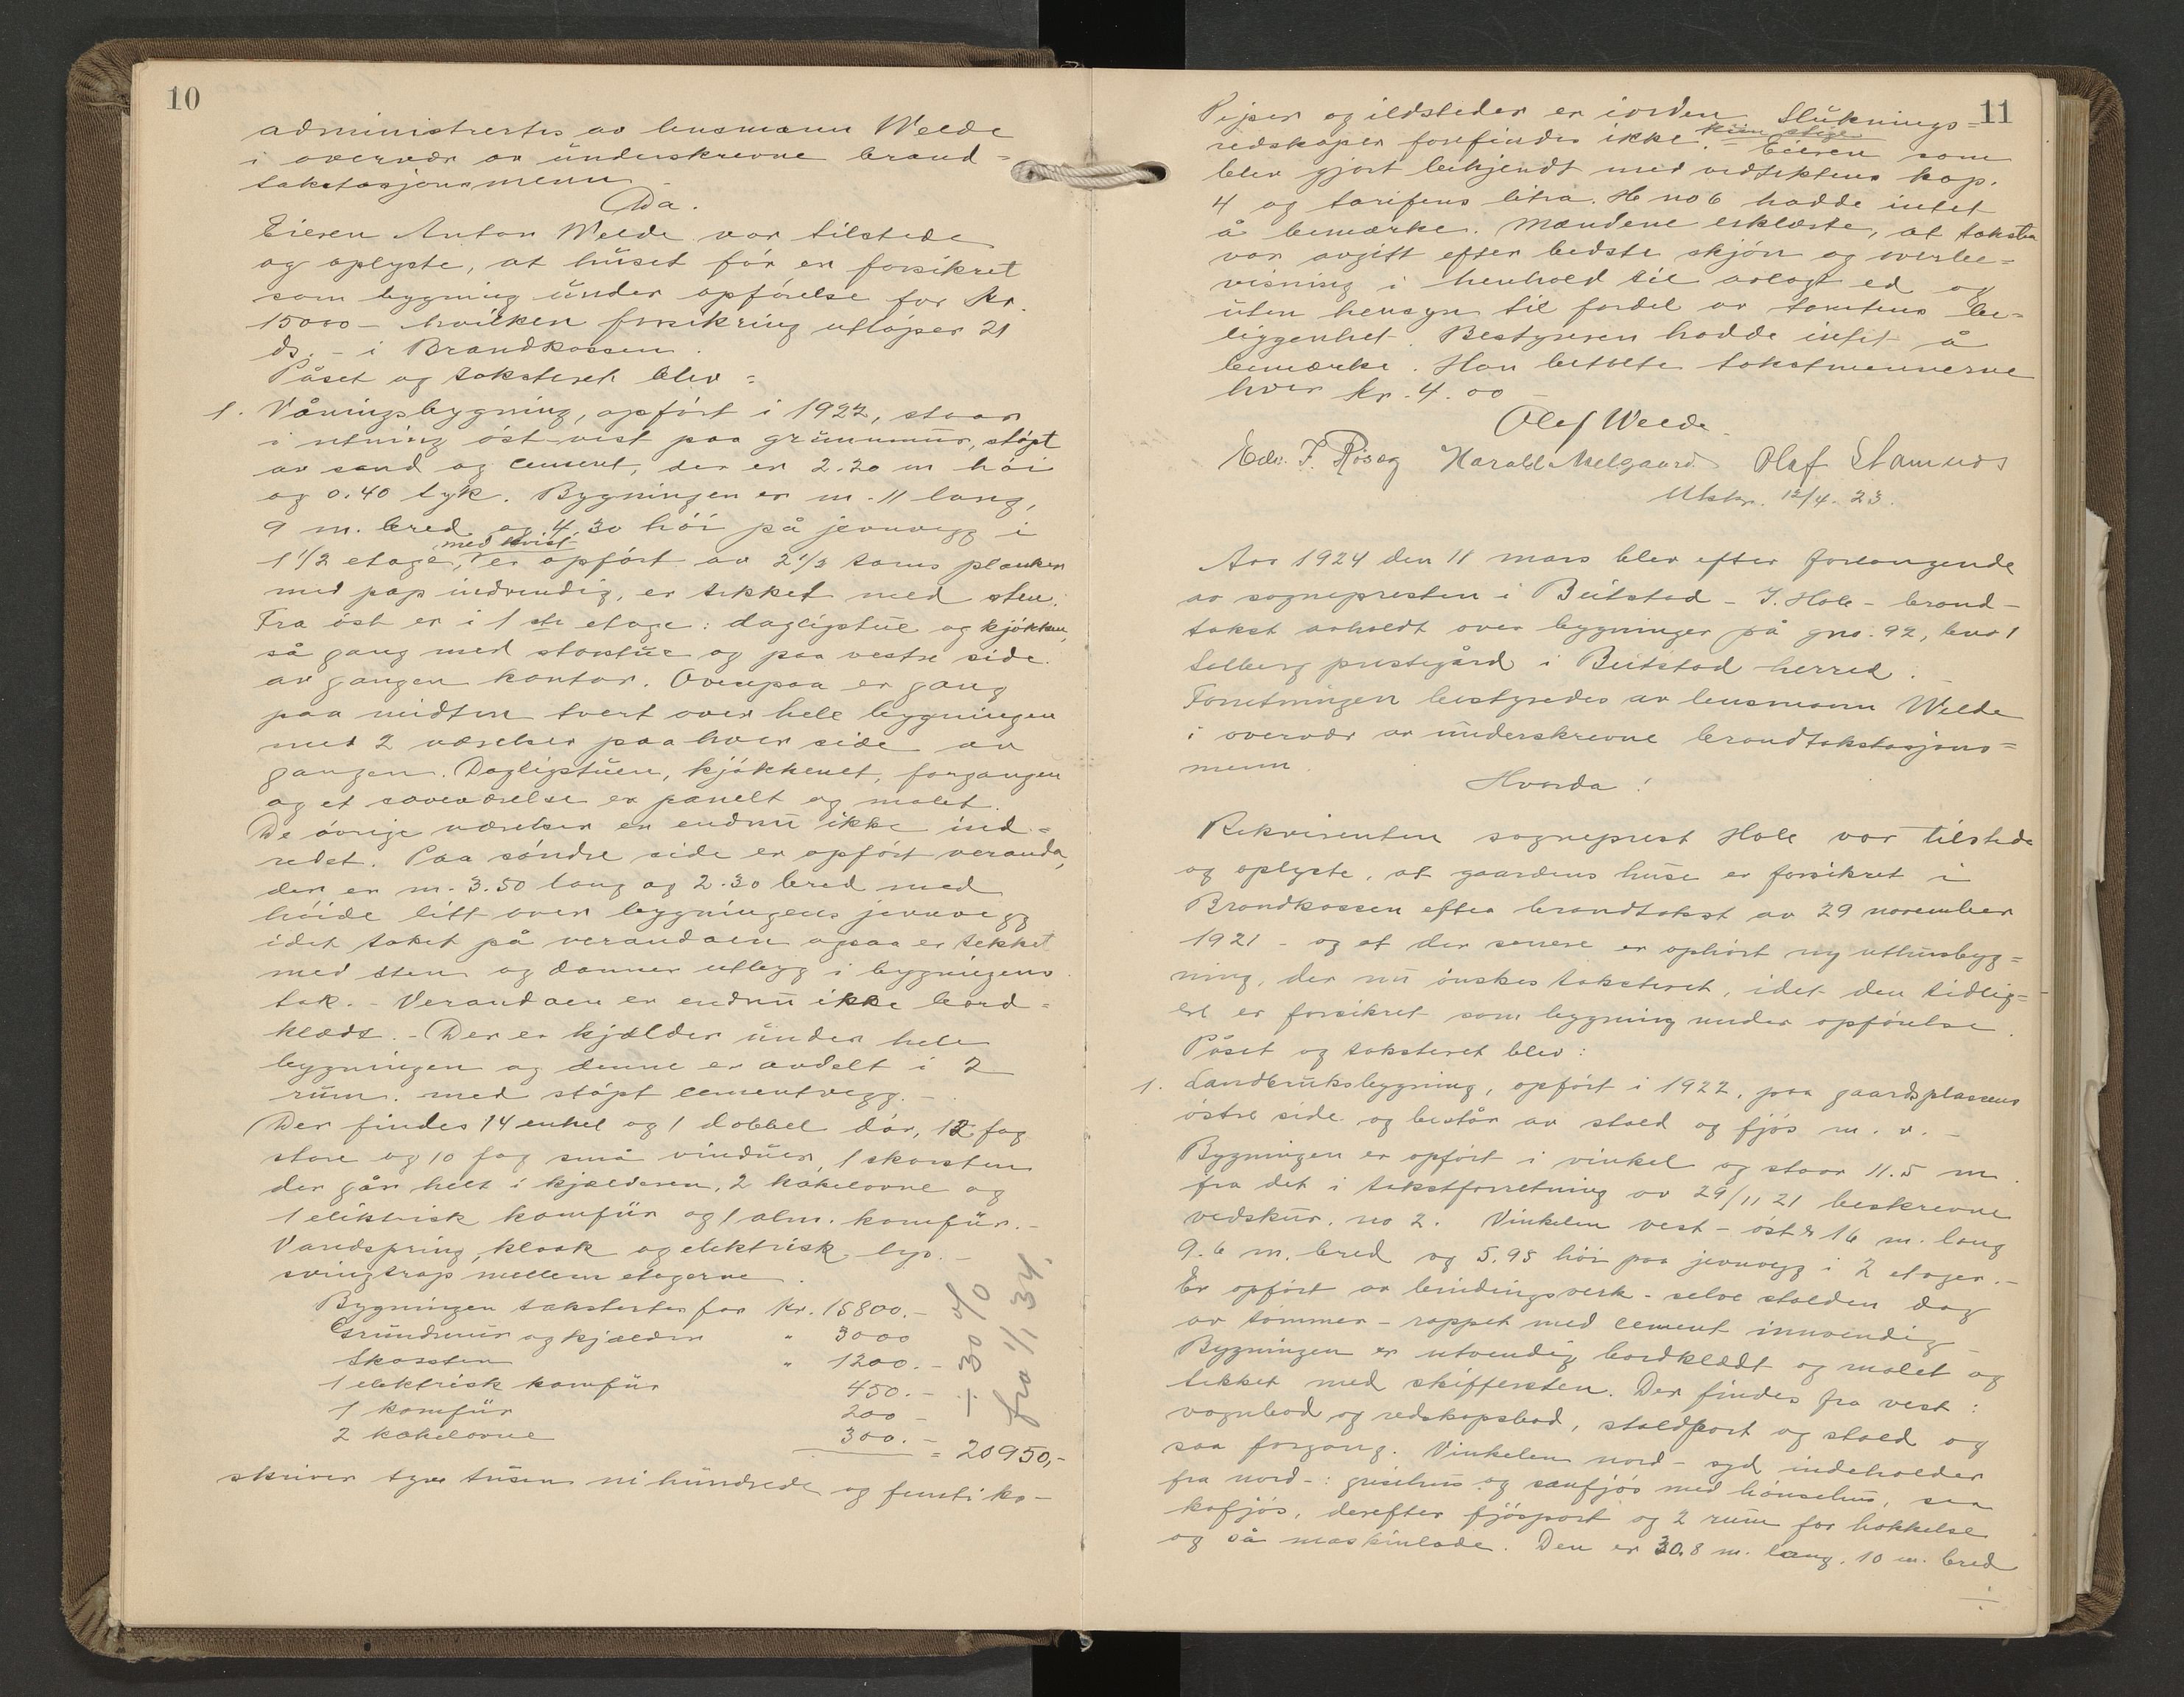 10
administrertes av lensmann Welde
i overvær av underskrevne brand=
takstasjonsmenn
Da.
Eieren Anton Welde var tilstede
og oplyste, at huset før er forsikret
som bygning under opførelse for kr.
15000 – hvilken forsikring utløper 21
ds. – i Brandkassen.
Påset og taksteret blev =
1. Våningsbygning, opført i 1922, staar
i retning øst-vest paa grunnmur, støpt
av sand og cement, der er 2.20 m høi
og 0.40 tyk. Bygningen er m. 11 lang,
9 m. bred og 4.30 høi på jevnvegg i
med kvist
1 1/2 etage, er opført av 2 1/2 toms planker
med pap indvendig, er tekket med sten.
Fra øst er i 1ste etage: dagligstue og kjøkken,
så gang med storstue og paa vestre side
av gangen kontor. Ovenpaa er gang
paa midten tvert over hele bygningen
med 2 værelser paa hver side av
gangen. Dagligstuen, kjøkkenet, forgangen
og et soveværelse er panelt og malet.
De øvrige værelser er endnu ikke ind=
redet. Paa søndre side er opført veranda,
den er m. 3.50 lang og 2.30 bred med
høide litt over bygningens jevnvegg
idet taket på verandaen ogsaa er tekket
med sten og danner utlegg i bygningens
tak. – Verandaen er endnu ikke bord=
klædt. – Der er kjælder under hele
bygningen og denne er avdelt i 2
rum. med støpt cementvegg. –
Der findes 14 enkel og 1 dobbel dør, 12 fag
store og 10 fag små vinduer, 1 skorsten
der går helt i kjælderen, 2 kakelovne og
1 elektrisk komfür og 1 alm. komfür. –
Vandspring, kloak og elektrisk lys. –
svingtrap mellem etagerne.
Bygningen taksertes for kr. 15800.–
Grundmur og kjælder " 3000
Skorsten " 1200.–
1 elektrisk komfür 450.–
1 komfür 200 –
2 kakelovne 300.– = 20950,–
÷ 30%
fra 1/1 34.
skriver tyve tusen ni hundrede og femti kr –
11
Piper og ildsteder er iorden. Sluknings=
kun stige
redskaper forefindes ikke. Eieren som
blev gjort bekjendt med vedtektens kap.
4 og tarifens litra. H no 6 hadde intet
å bemærke. Mændene erklærte, at taksten
var avgitt efter bedste skjøn og overbe=
visning i henhold til avlagt ed og
uten hensyn til fordel av tomtens be=
liggenhet. Bestyreren hadde intet å
bemærke. Han betalte takstmennerne
hver kr. 4.00
Olef Welde
Edv. F. Røseg Harald Melgaard Olaf
Utskr. 12/4. 23.
Aar 1924 den 11 mars blev efter forlangende
av sognepresten i Beitstad – J. Hole – brand–
takst avholdt over bygninger på gno. 92, bno 1
Solberg prestegård i Beitstad herred.
Forretningen bestyredes av lensmann Welde
i overvær av underskrevne brandtakstasjons=
menn.
Hvorda!
Rekvirenten sogneprest Hole var tilstede
og oplyste, at gaardens huse er forsikret i
Brandkassen efter brandtakst av 29 november
1921 – og at der senere er opført ny uthusbyg=
ning, der nu ønskes taksteret, idet den tidlig=
ere er forsikret som bygning under opførelse.
Påset og taksteret blev:
1. Landbruksbygning, opført i 1922, paa gaardsplassens
østre side og består av stald og fjøs m. v. –
Bygningen er opført i vinkel og staar 11.5 m.
fra det i takstforretning av 29/11 21 beskrevne
vedskur. no 2. Vinkelen vest – øst er 16 m. lang
9.6 m. bred og 5.95 høi paa jevnvegg i 2 etager. –
Er opført av bindingsverk – selve stalden dog
av tømmer – rappet med cement innvendig
Bygningen er utvendig bordklædt og malet og
tekket med skiffersten. Der findes fra vest:
vognbod og redskapsbod, staldport og stald og
saa forgang. Vinkelen nord – syd indeholder
fra nord –: grisehus og saufjøs med hønsehus, saa
kofjøs, derefter fjøsport og 2 rum for hakkelse
og så maskinlade. Den er 30.8 m. lang. 10 m. bred